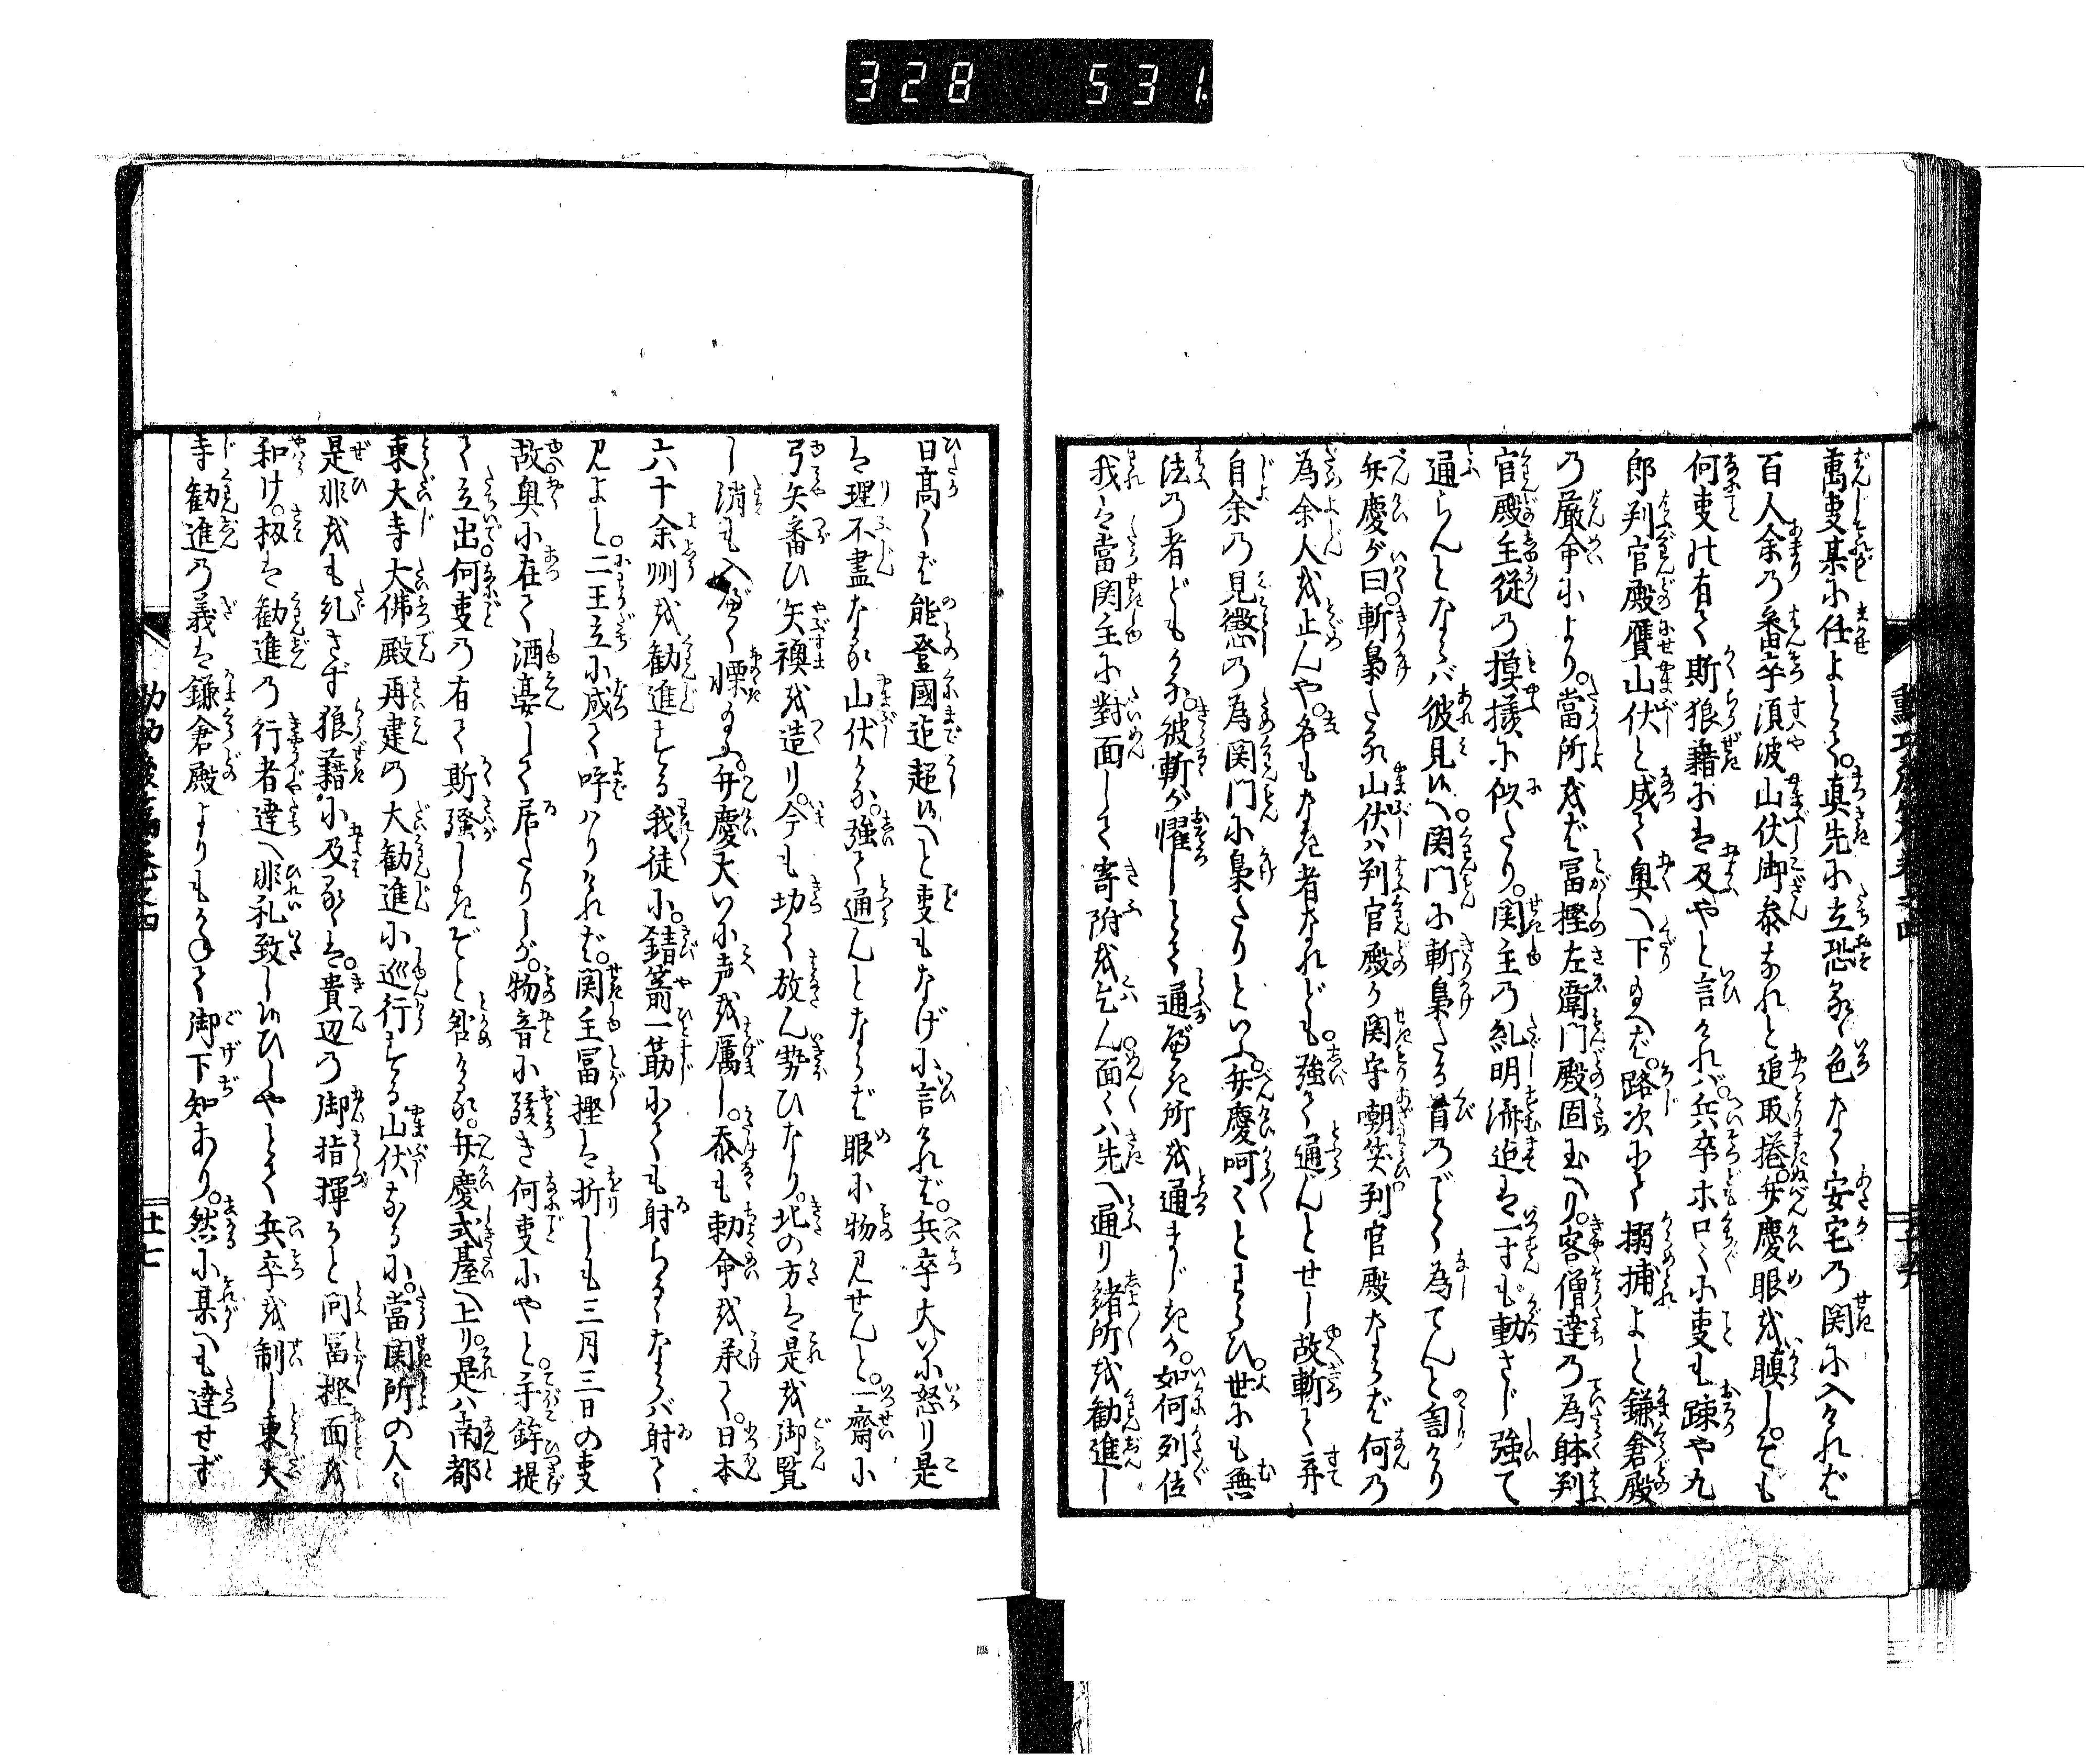 328 531
萬事某に任よとて。真先に立恐るゝ色なく安宅の関に入ければ
百人余の番卒須波山伏御参なれと追取捲。弁慶眼を瞋し。そも
何事の有て斯狼藉には及やと言ければ。兵卒ホ口々に事も疎や九
郎判官殿贋山伏と成て奥へ下り玉へば。路次にて搦捕よと鎌倉殿
の厳命により。當所をば冨樫左衛門殿固玉へり。客僧達の為体判
官殿主従の摸様に似たり。関主の糺明済迄は一寸も動さじ強て
通らんとならバ彼見候へ関門に斬梟たる首のごとく為てんと訇けり
弁慶が曰斬梟たる山伏ハ判官殿か関守嘲笑判官殿ならば何の
為余人を止んや。名もなき者なれども。強て通んとせし故斬て棄
自余の見懲の為関門に梟たりといふ。弁慶呵々とわらひ。世にも無
法の者どもかな。彼斬が懼しとて通べき所を通まじきか。如何列位
我は當関主に對面して寄附を乞ん。面々ハ先へ通り諸所を勧進し
日高くば能登國迄超候へと事もなげに言ければ。兵卒大いに怒り是
は理不盡なる山伏かな。強て通んとならば眼に物見せんと。一齋に
弓矢番ひ矢襖を造り。今も切て放ん勢ひなり。北の方は是を御覧
し消も入べく慄玉ふ。弁慶大いに声を厲し。忝も勅命を承て。日本
六十余州を勧進する我徒に。錆箭一筋にても射らるゝならバ射て
見よと。二王立に成て呼ハりければ。関主冨樫は折しも三月三日の事
故奥に在て酒宴して居たりしが。物音に駭き何事にやと手鉾提
て立出。何事の有て斯騒しきぞと咎ける。弁慶式臺へ上り。是ハ南都
東大寺大佛殿再建の大勧進に巡行する山伏なるに。當関所の人々
是非をも糺さず狼藉に及るゝは。貴辺の御指揮かと問冨樫面を
和げ。扨は勧進の行者達へ非礼致し候ひしやとて兵卒を制し東大
寺勧進の義は鎌倉殿よりもかねて御下知あり。然に某へも達せず